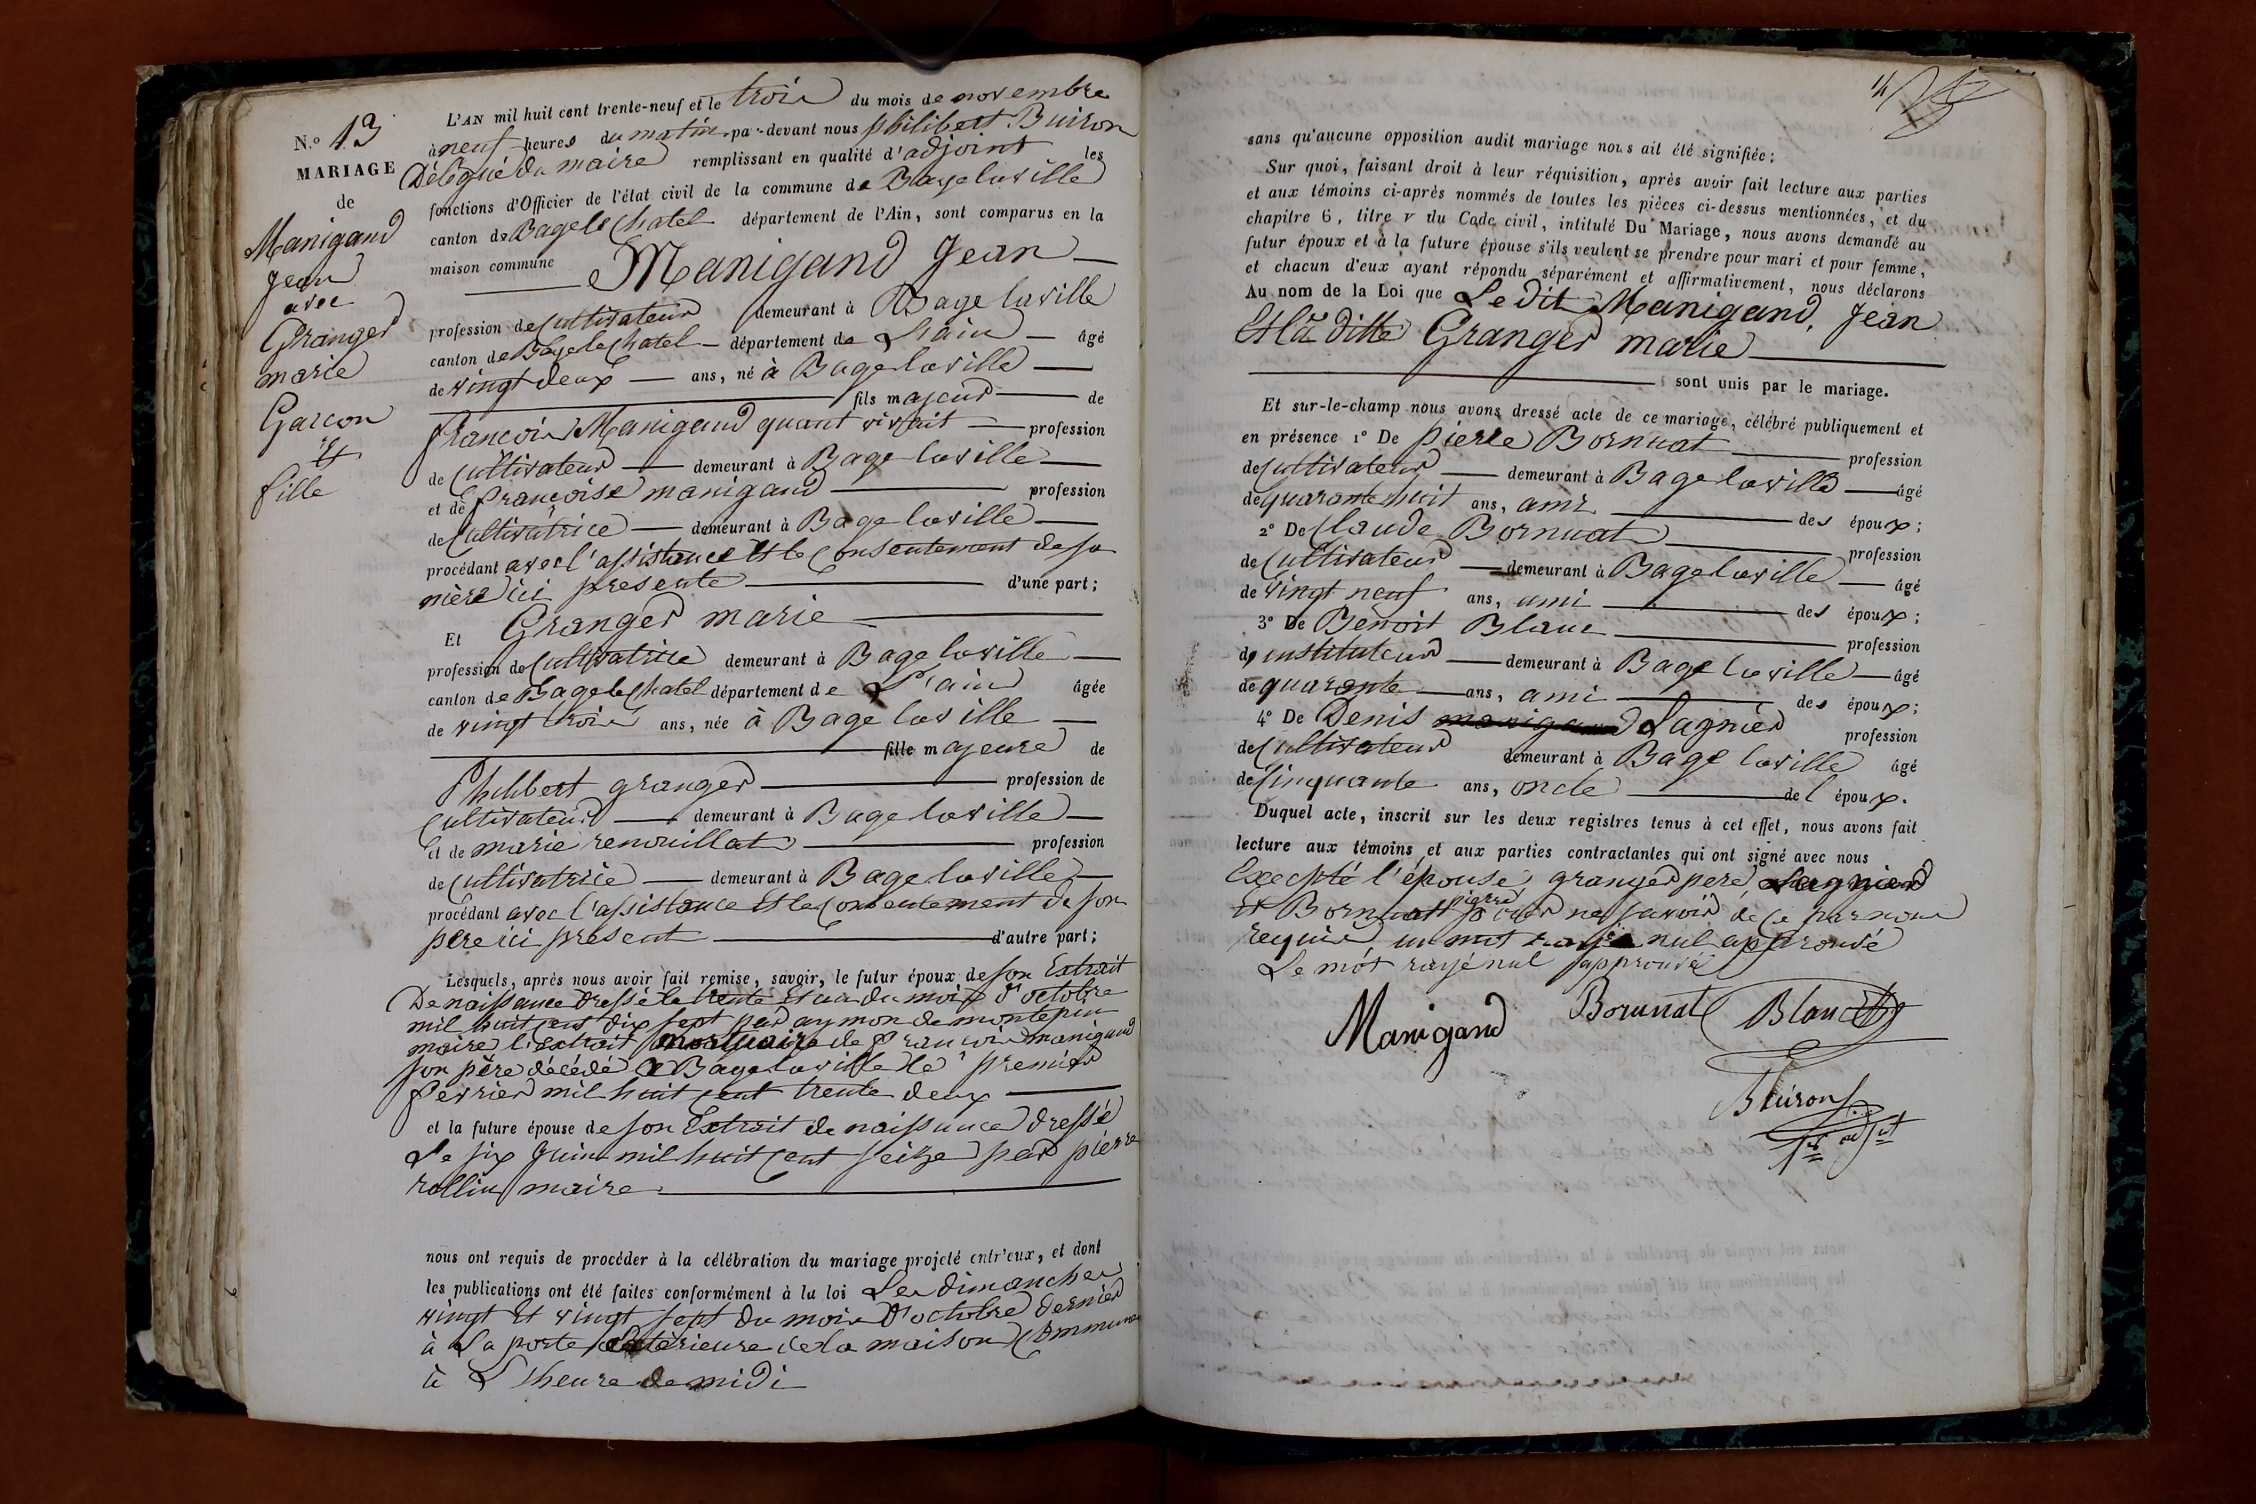 N.º 13
MARIAGE
de
Manigand
Jean
avec
Granger
marie
Garcon
et
fille
L'AN mil huit cent trente-neuf et le trois du mois de novembre
à neuf heures du matin par-devant nous philibert Buiron
Délégué du maire remplissant en qualité d'adjoint les
fonctions d'Officier de l'état civil de la commune de Bage laville
canton de Bage le Chatel département de l'Ain, sont comparus en la
maison commune Manigand Jean
profession de Cultivateur demeurant à Bage laville
canton de Bage le Chatel département de L'ain âgé
de vingt deux ans, né à Bage laville
fils majeur de
francois Manigand quant vivait profession
de Cultivateur demeurant à Bage laville
et de françoise manigand profession
de Cultivatrice demeurant à Bage laville
procédant avec l'assistance et le Consentement de sa
mère ici presente d'une part;
Et Granger marie
profession de Cultivatrice demeurant à Bage laville
canton de Bage le Chatel département de L'ain âgée
de vingt trois ans, née à Bage laville
fille majeure de
Philibert granger profession de
Cultivateur demeurant à Bage laville
et de marie renouillat profession
de Cultivatrice demeurant à Bage laville
procédant avec l'assistance et le Consentement de son
père ici présent d'autre part;
Lesquels, après nous avoir fait remise, savoir, le futur époux de son Extrait
De naissance dressé le trente et un du mois d'octobre
mil huit cent dix sept par aymon de montepin
maire l'extrait mortuaire de francois manigand
son père décédé à Bage laville le premier
fevrier mil huit cent trente deux
et la future épouse de son Extrait de naissance dressé
Le six Juin mil huit cent seize par pierre
rollin maire
nous ont requis de procéder à la célébration du mariage projeté entr'eux, et dont
les publications ont été faites conformément à la loi Les dimanches
vingt et vingt sept du mois d'octobre dernier
à La porte extérieure de la maison Commune
à L'heure de midi
14
sans qu'aucune opposition audit mariage nous ait été signifiée;
Sur quoi, faisant droit à leur réquisition, après avoir fait lecture aux parties
et aux témoins ci-après nommés de toutes les pièces ci-dessus mentionnées, et du
chapitre 6, titre v du Code civil, intitulé Du Mariage, nous avons demandé au
futur époux et à la future épouse s'ils veulent se prendre pour mari et pour femme,
et chacun d'eux ayant répondu séparément et affirmativement, nous déclarons
Au nom de la Loi que Le dit Manigand, Jean
Et la ditte Granger marie
sont unis par le mariage.
Et sur-le-champ nous avons dressé acte de ce mariage, célébré publiquement et
en présence 1º De pierre Bornuat profession
de Cultivateur demeurant à Bage laville âgé
de quarante huit ans, ami des époux;
2º De Claude Bornuat profession
de Cultivateur demeurant à Bage laville âgé
de vingt neuf ans, ami des époux;
3º De Benoit Blanc profession
de instituteur demeurant à Bage laville âgé
de quarante ans, ami des époux;
4º De Denis manigand Lagnier profession
de Cultivateur demeurant à Bage laville âgé
de Cinquante ans, oncle de l'époux.
Duquel acte, inscrit sur les deux registres tenus à cet effet, nous avons fait
lecture aux témoins et aux parties contractantes qui ont signé avec nous
Excepté l'épouse, granger pere, Lagnier
et Bornuat pierre pour ne savoir de ce par nous
requis un mot rayé nul approuvé
Le mot rayé nul approuvé
Manigand Bornuat Blanc
Buiron
1er adjt